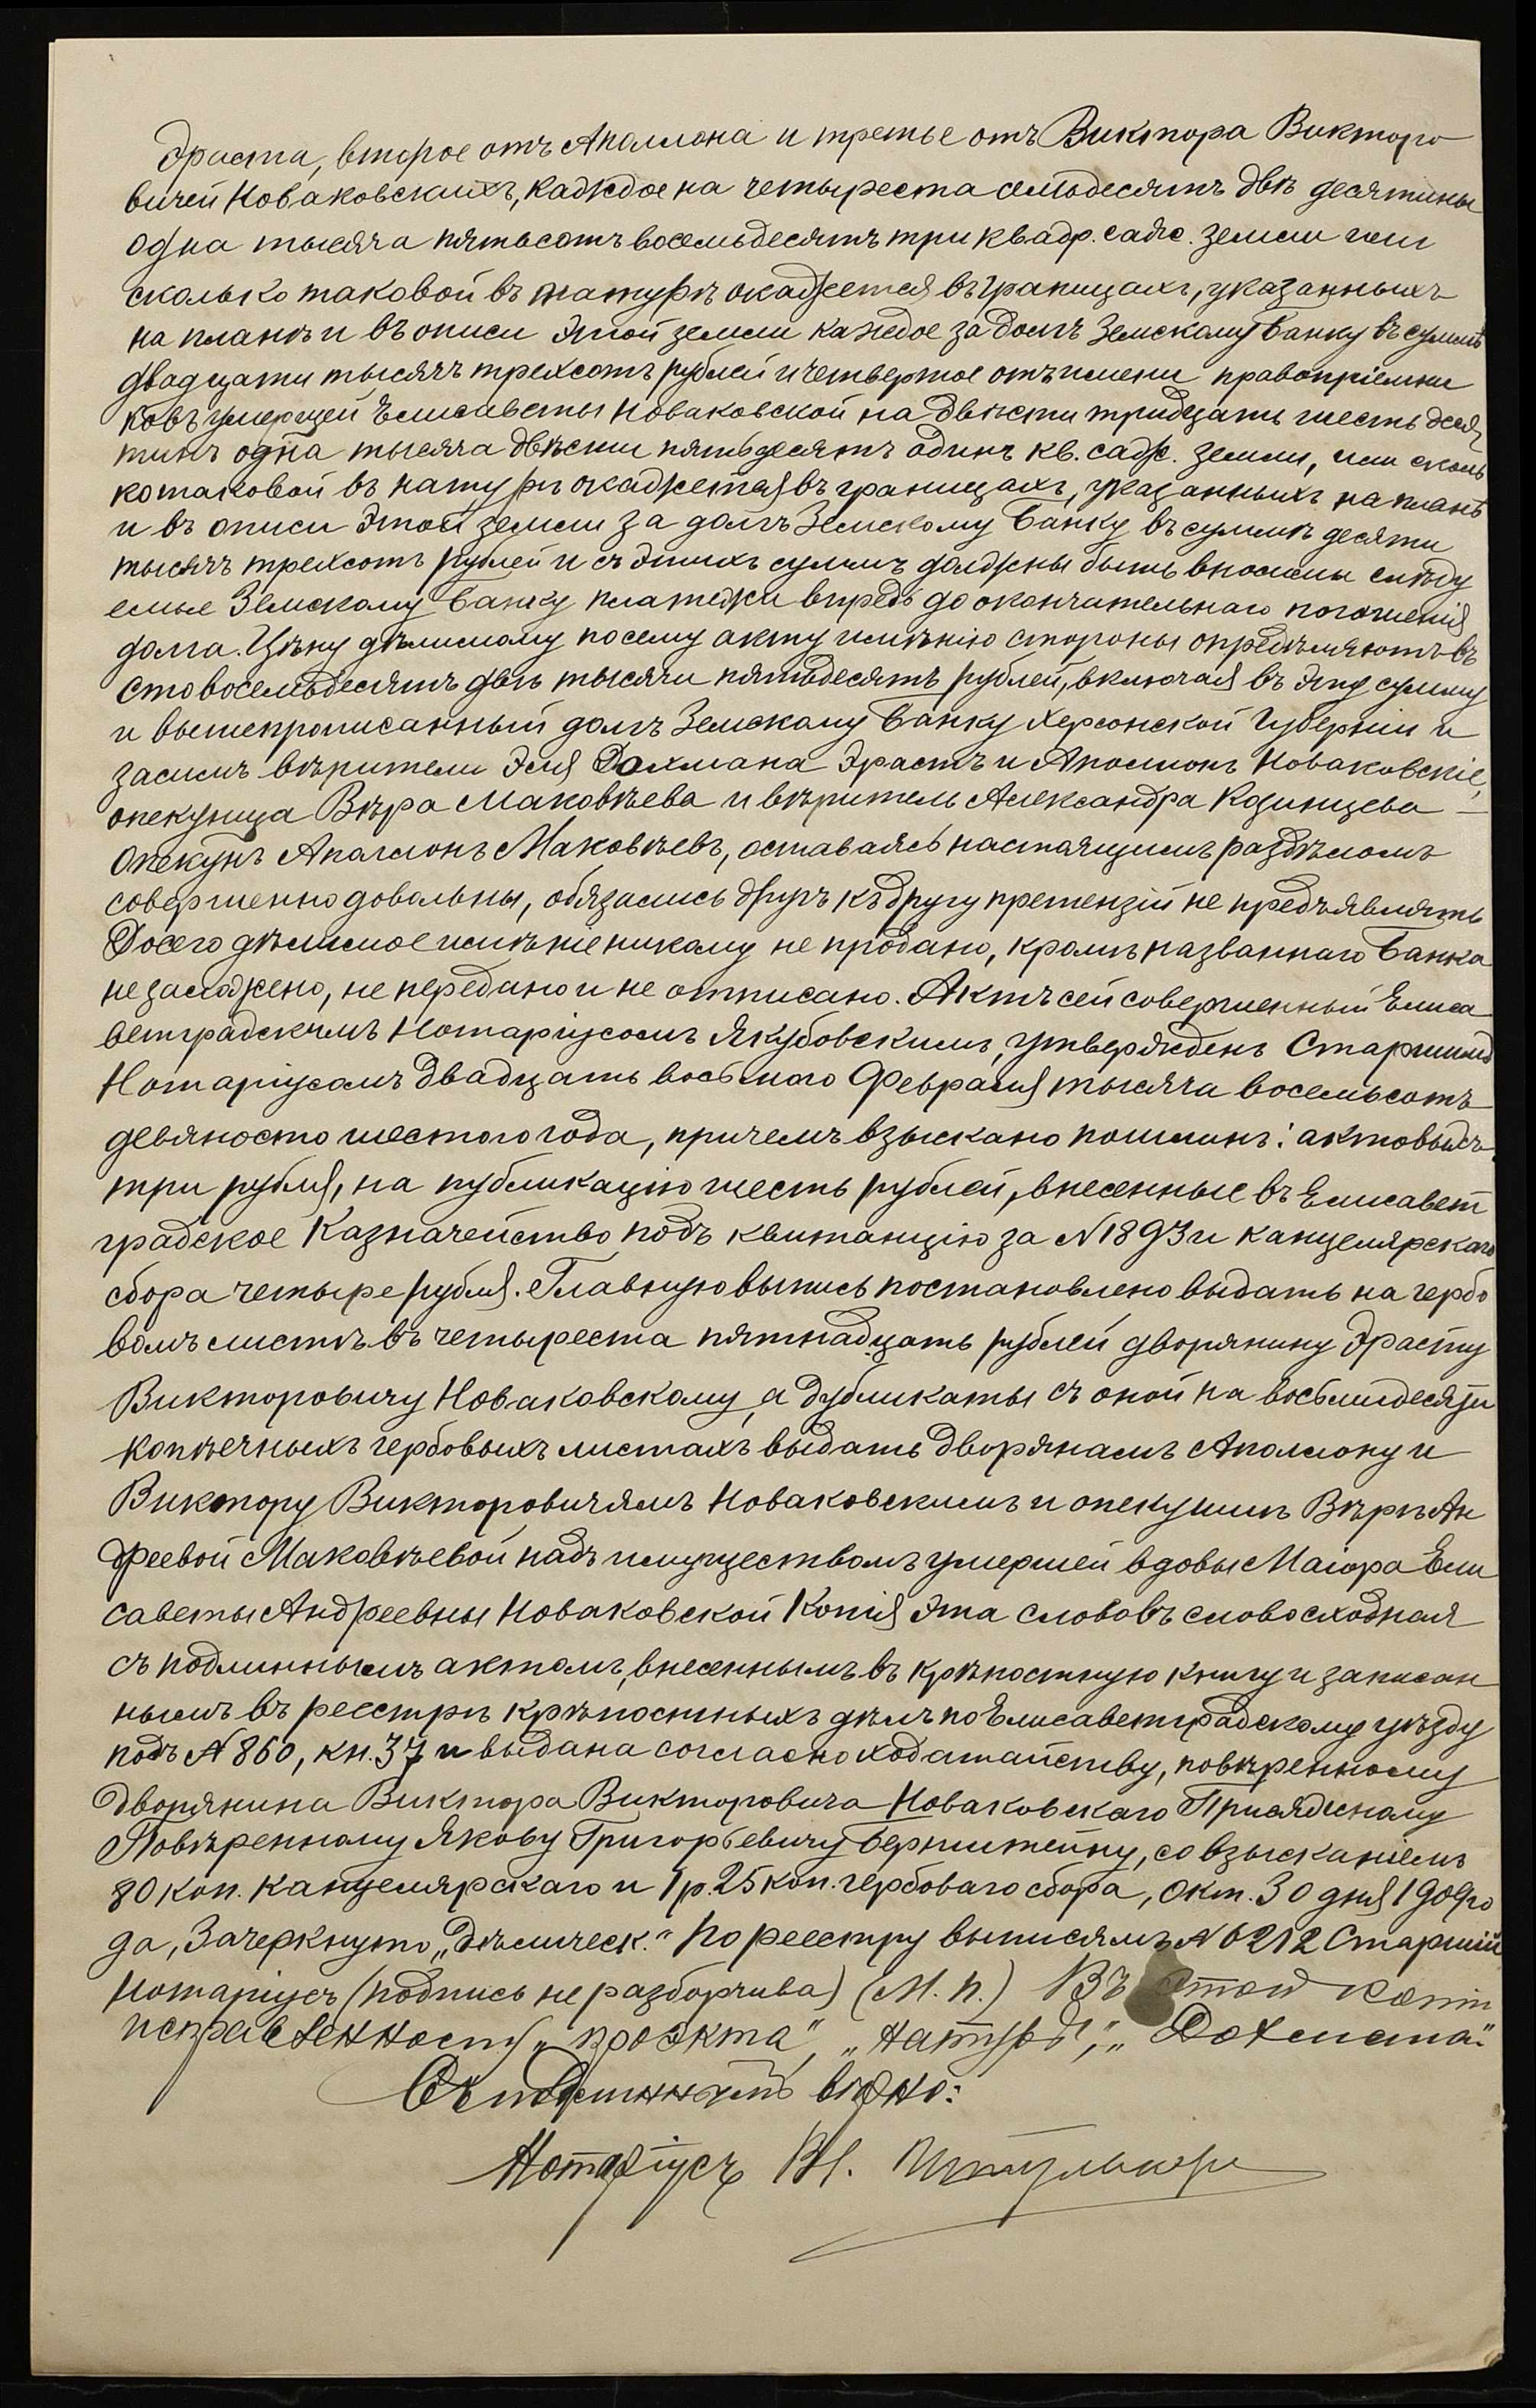 Эраста, второе отъ Аполлона и третье отъ Виктора Викторо
вичей Новаковскихъ, каждое на четыреста семьдесятъ двѣ десятины
одна тысяча пятьсотъ восемьдесятъ три квадр. саж. земли или
сколько таковой въ натурѣ окажется въ границахъ, указанныхъ
на планѣ и въ описи этой земли каждое за долгъ Земскому Банку въ суммѣ
двадцати тысячъ трехсотъ рублей и четвертое отъ имени правопріемни
ковъ умершей Елисаветы Новаковской на двѣсти тридцать шесть деся
тинъ одна тысяча двѣсти пятьдесятъ одинъ кв. саж. земли, или сколь
ко таковой въ натурѣ окажется въ границахъ, указанныхъ на планѣ
и въ описи этой земли за долгъ Земскому Банку въ суммѣ десяти
тысячъ трехсотъ рублей и съ этихъ суммъ должны быть вносимы слѣду
емые Земскому Банку платежи впредь до окончательнаго погашенія
долга. Цѣну дѣлимому по сему акту имѣнію стороны опредѣляютъ въ
сто восемьдесятъ двѣ тысячи пятьдесятъ рублей, включая въ эту сумму
и вышепрописанный долгъ Земскому Банку Херсонской Губерніи и
засимъ вѣрители Эля Дохмана Эрастъ и Аполлонъ Новаковскіе,
опекунша Вѣра Маковѣева и вѣритель Александра Кодинцева —
опекунъ Аполлонъ Маковѣевъ, оставаясь настоящимъ раздѣломъ
совершенно довольны, обязались другъ къ другу претензій не предъявлять
До сего дѣлимое имѣніе никому не продано, кромѣ названнаго Банка
не заложено, не передано и не отписано. Актъ сей совершенный Елиса
ветградскимъ Нотаріусомъ Якубовскимъ, утвержденъ Старшимъ
Нотаріусомъ двадцать восьмого Февраля тысяча восемьсотъ
девяносто шестого года, причемъ взыскано пошлинъ: актовыхъ
три рубля, на публикацію шесть рублей, внесенные въ Елисавет
градское Казначейство подъ квитанцію за № 1893 и канцелярскаго
сбора четыре рубля. Главную выпись постановлено выдать на гербо
вомъ листѣ въ четыреста пятнадцать рублей дворянину Эрасту
Викторовичу Новаковскому, а дубликаты съ оной на восьмидесяти
копѣечныхъ гербовыхъ листахъ выдать дворянамъ Аполлону и
Виктору Викторовичямъ Новаковскимъ и опекуншѣ Вѣрѣ Ан
дреевой Маковѣевой надъ имуществомъ умершей вдовы Маіора Ели
саветы Андреевны Новаковской Копія эта слово въ слово сходная
съ подлиннымъ актомъ, внесеннымъ въ крѣпостную книгу и записан
нымъ въ реестрѣ крѣпостныхъ дѣлъ по Елисаветградскому уѣзду
подъ № 860, кн. 37 и выдана согласно ходатайству, повѣренному
дворянина Виктора Викторовича Новаковскаго Присяжному
Повѣренному Якову Григорьевичу Бернштейну, со взысканіемъ
80 коп. канцелярскаго и 1 р. 25 коп. гербоваго сбора, Окт. 30 дня 1909 го
да, Зачеркнуто „дѣлическ." По реестру выписямъ № 6212 Старшій
Нотаріусъ (подпись не разборчива) (М. п.) Въ этой копіи
исправленности „проэкта", „натурѣ", „Дохмана."
Съ подлиннымъ вѣрно:
Нотаріусъ Вл.